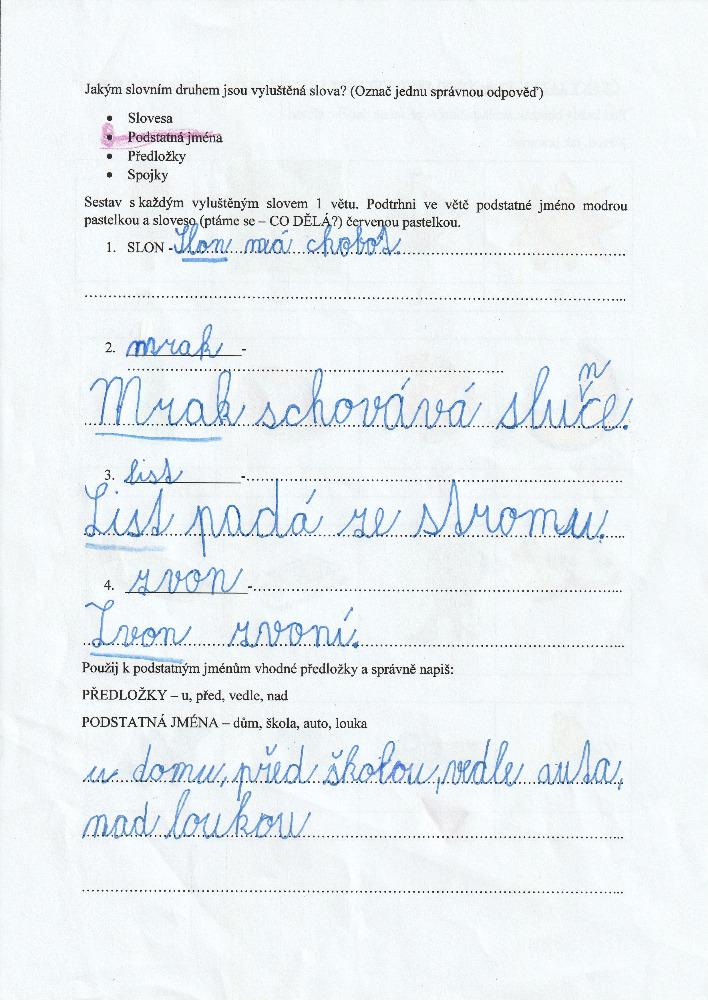 Jakým slovním druhem jsou vyluštěná slova? (Označ jednu správnou odpověď)
• Slovesa
• Podstatná jména
• Předložky
• Spojky
Sestav s každým vyluštěným slovem 1 větu. Podtrhni ve větě podstatné jméno modrou
pastelkou a sloveso (ptáme se – CO DĚLÁ?) červenou pastelkou.
1. SLON - Slon má chobot.
2. mrak -
n
Mrak schovává sluče.
3. list -
List padá ze stromu.
4. zvon -
Zvon zvoní.
Použij k podstatným jménům vhodné předložky a správně napiš:
PŘEDLOŽKY – u, před, vedle, nad
PODSTATNÁ JMÉNA – dům, škola, auto, louka
u domu, před školou, vedle auta,
nad loukou